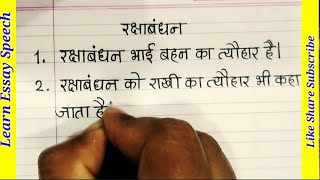 Learn Essay Speech
रक्षाबंधन
1. रक्षाबंधन भाई बहन का त्यौहार है।
2. रक्षाबंधन को राखी का त्यौहार भी कहा
जाता है
Like Share Subscribe